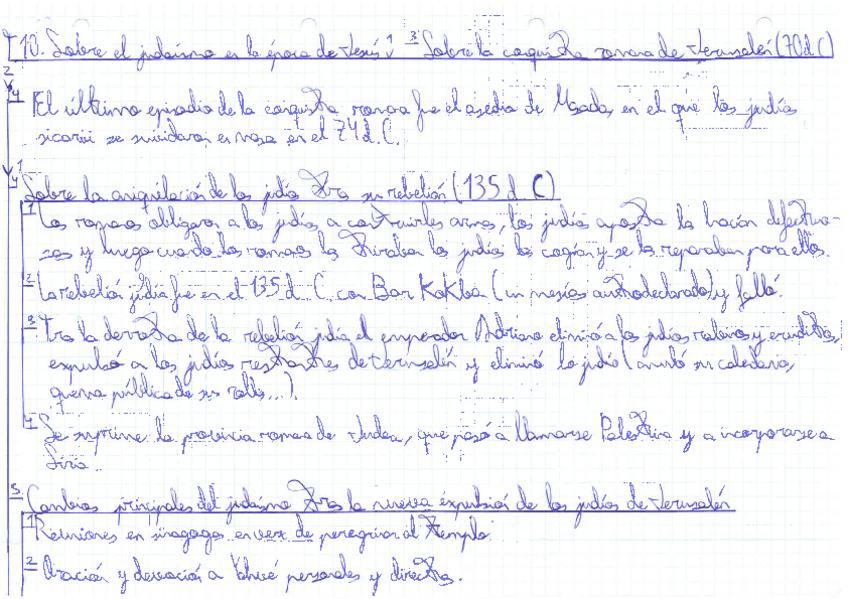 T10. Sobre el judaísmo en la época de Jesús 1 3 Sobre la conquista romana de Jerusalén (70 d.C)
2
4 El último episodio de la conquista romana fue el asedio de Masada, en el que los judíos
sicarii se suicidaron en masa en el 74 d.C.
4 Sobre la aniquilación de los judíos tras su rebelión (135 d. C)
1 Los romanos obligaron a los judíos a construirles armas, los judíos aposta las hacían defectuo-
sas y luego cuando los romanos las tiraban los judíos las cogían y se las reparaban para ellos.
2 La rebelión judía fue en el 135 d. C. con Bar Kokba (un mesías autodeclarado) y falló.
3 Tras la derrota de la rebelión judía, el emperador Adriano eliminó a los judíos rabinos y eruditos,
expulsó a los judíos restantes de Jerusalén y eliminó lo judío (anuló su calendario,
quema pública de sus rollos...).
4 Se suprime la provincia romana de Judea, que pasó a llamarse Palestina y a incorporarse a
Siria.
5 Cambios principales del judaísmo tras la nueva expulsión de los judíos de Jerusalén
1 Reuniones en sinagogas en vez de peregrinar al Templo.
2 Oración y devoción a Yahvé personales y directas.